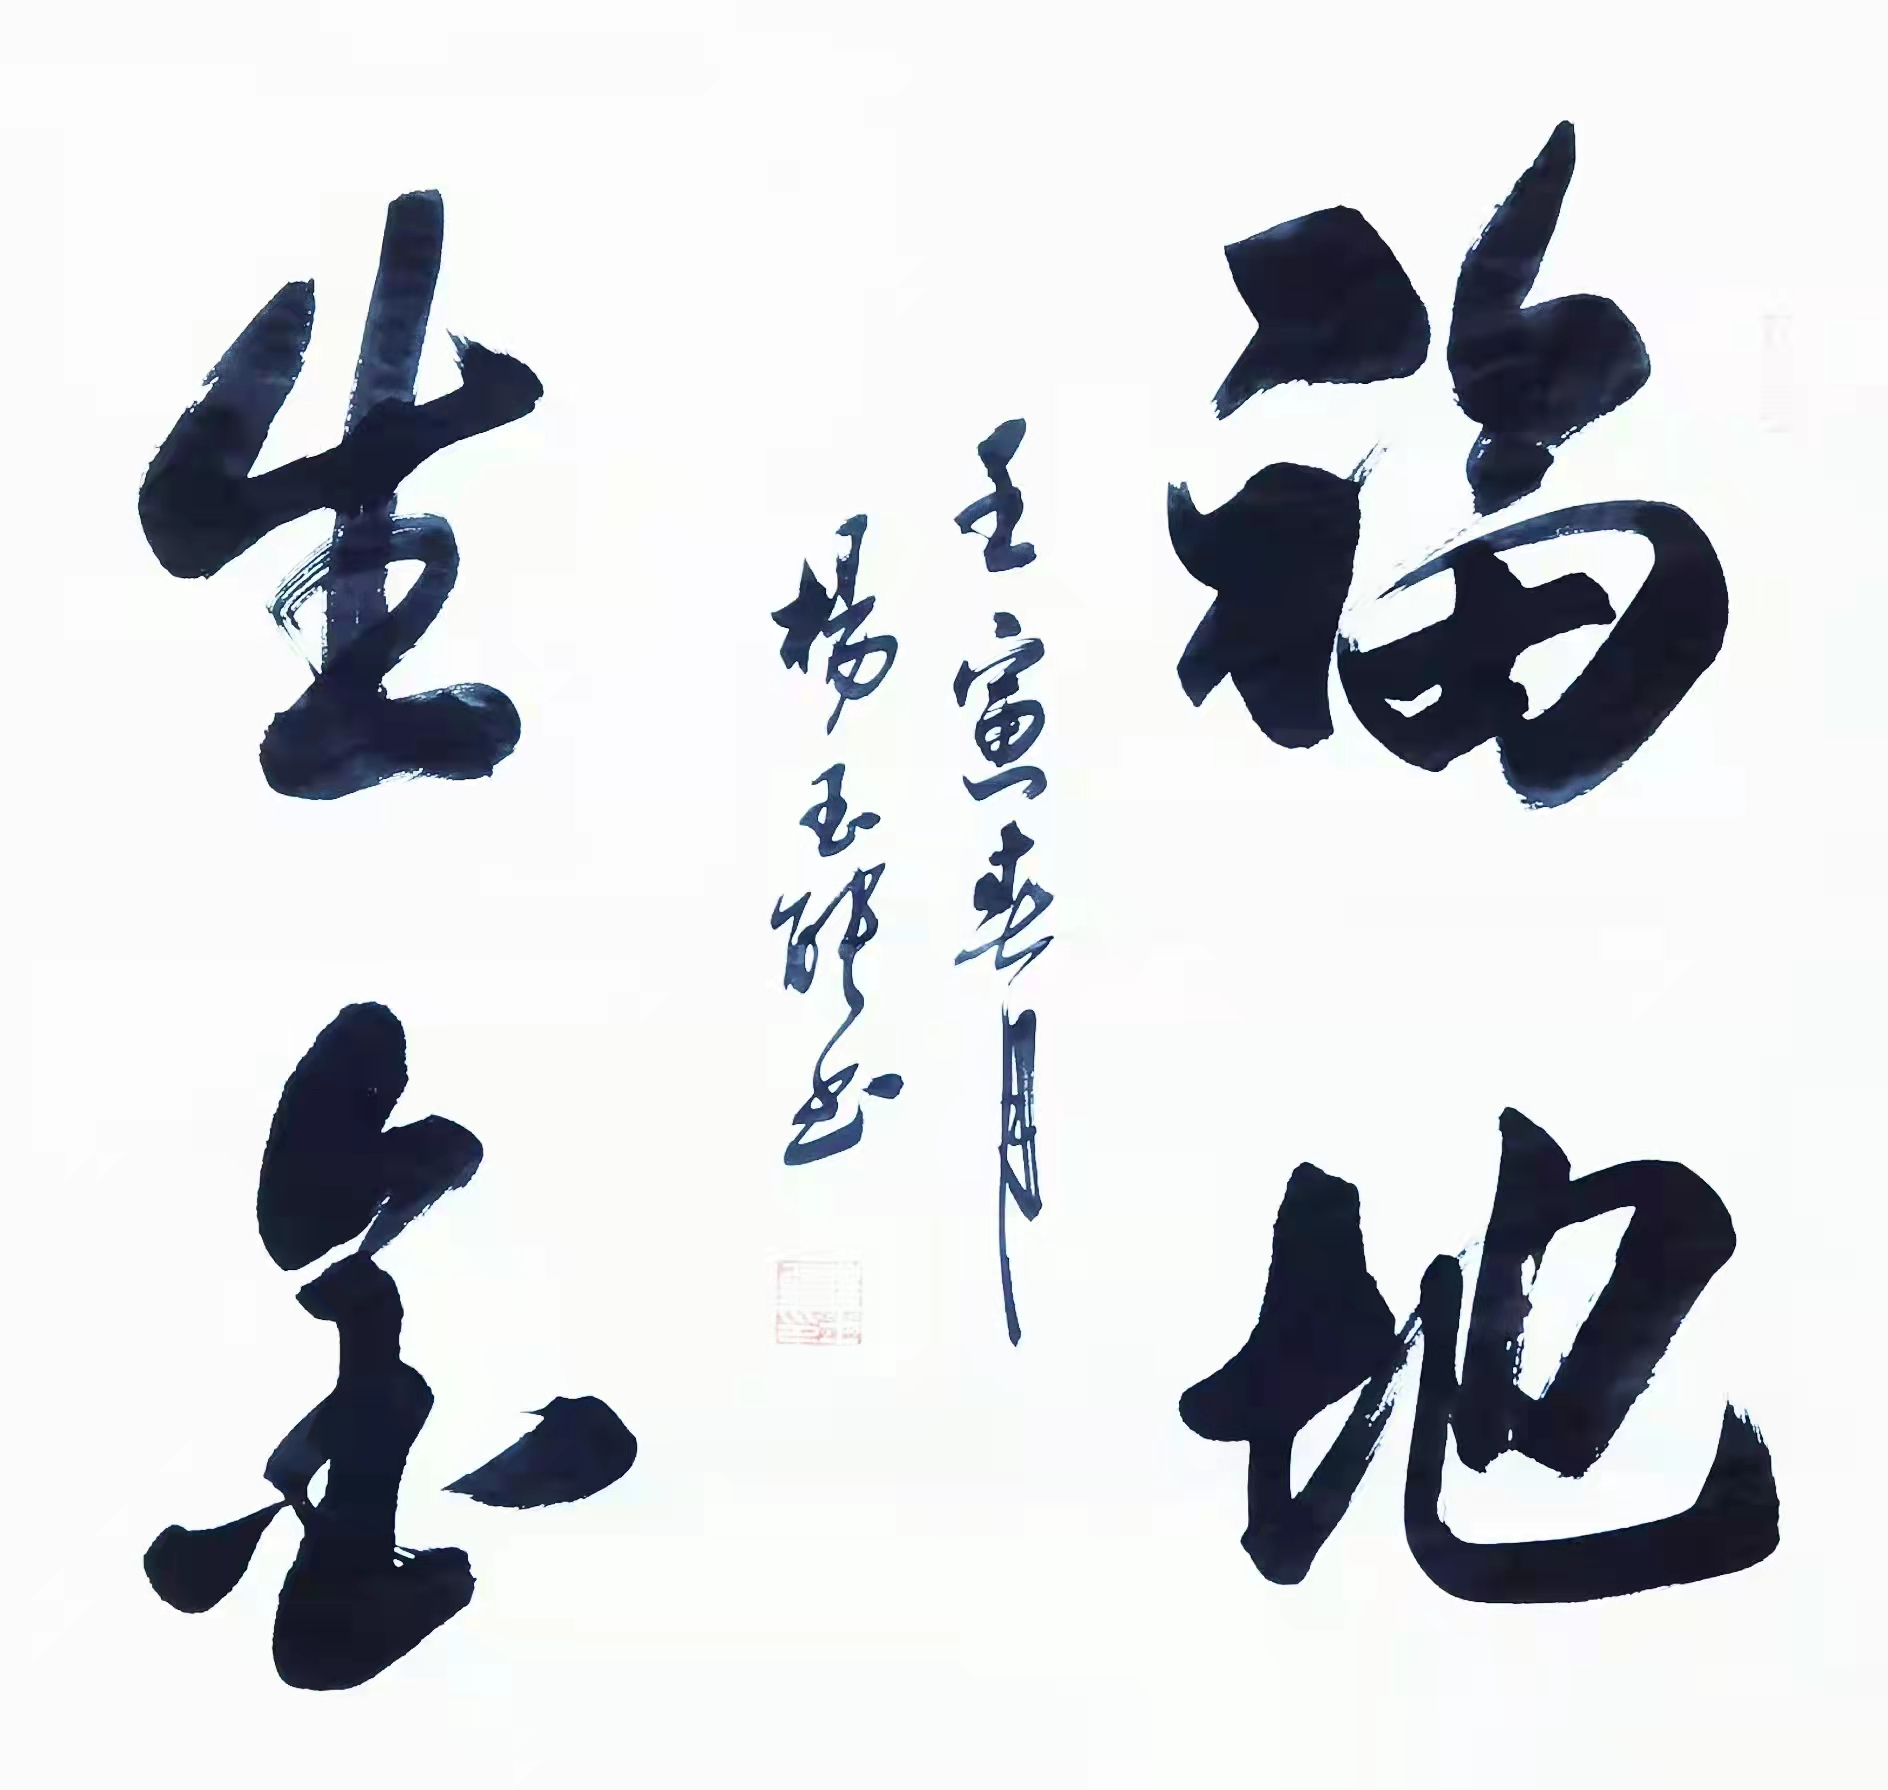 福地
生金
壬寅春月
楊玉龍书